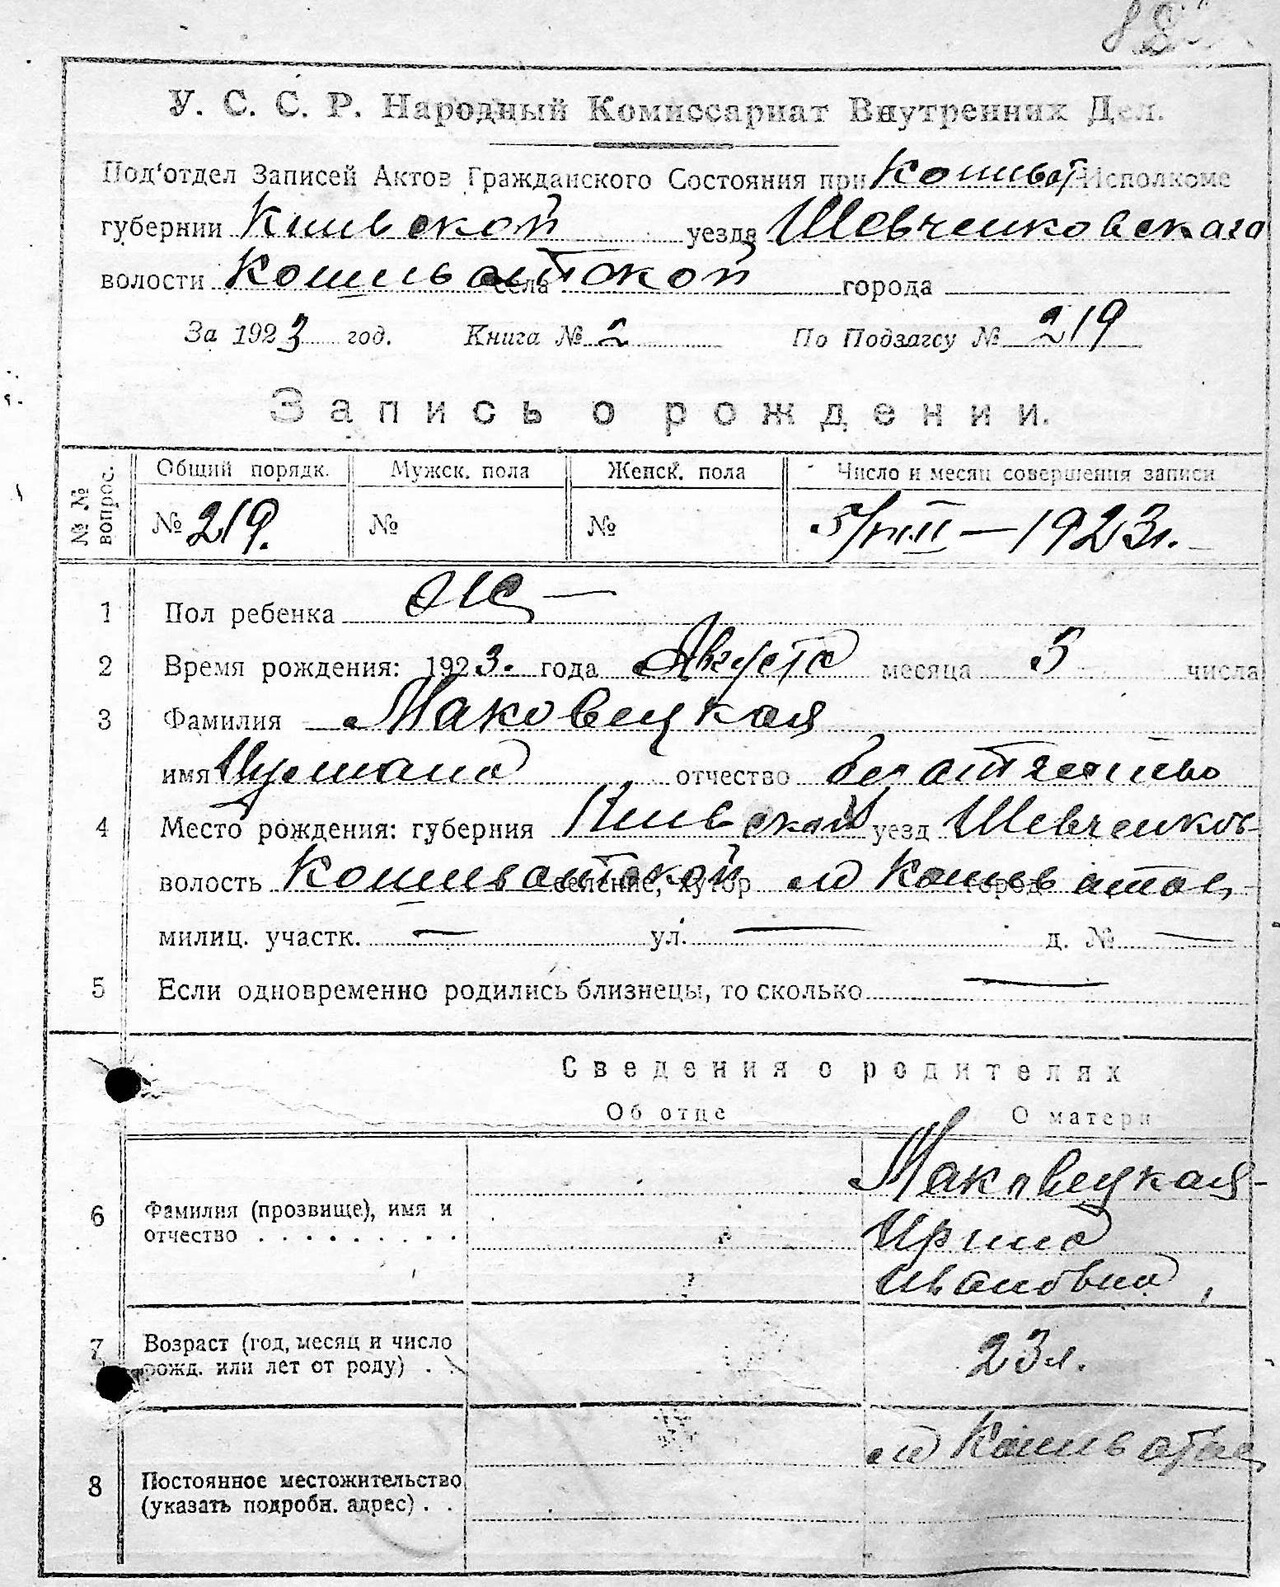 88
У. С. С. Р. Народный Комиссариат Внутренних Дел.
Под'отдел Записей Актов Гражданского Состояния при Кошеват Исполкоме
губернии Киевской уезда Шевченковского
волости Кошеватской села города
За 1923 год. Книга № 2 По Подзагсу № 219
Запись о рождении.
№ № вопрос. Общий порядк. Мужск. пола Женск. пола Число и месяц совершения записи
№ 219. № № 5/VIII – 1923 г.
1 Пол ребенка Ж —
2 Время рождения: 1923. года Августа месяца 5 числа
3 Фамилия Маковецкая
имя отчество
4 Место рождения: губерния Киевской уезд Шевченков-
волость Кошеватской селение, хутор м Кошеватое город
милиц. участк. — ул. — д. № —
5 Если одновременно родились близнецы, то сколько —
Сведения о родителях
Об отце О матери
6 Фамилия (прозвище), имя и отчество . . . . . . . . . Маковецкая
Ирина
Ивановна,
7 Возраст (год, месяц и число рожд. или лет от роду) . . 23 л.
8 Постоянное местожительство (указать подробн. адрес) . . м Кошеватое